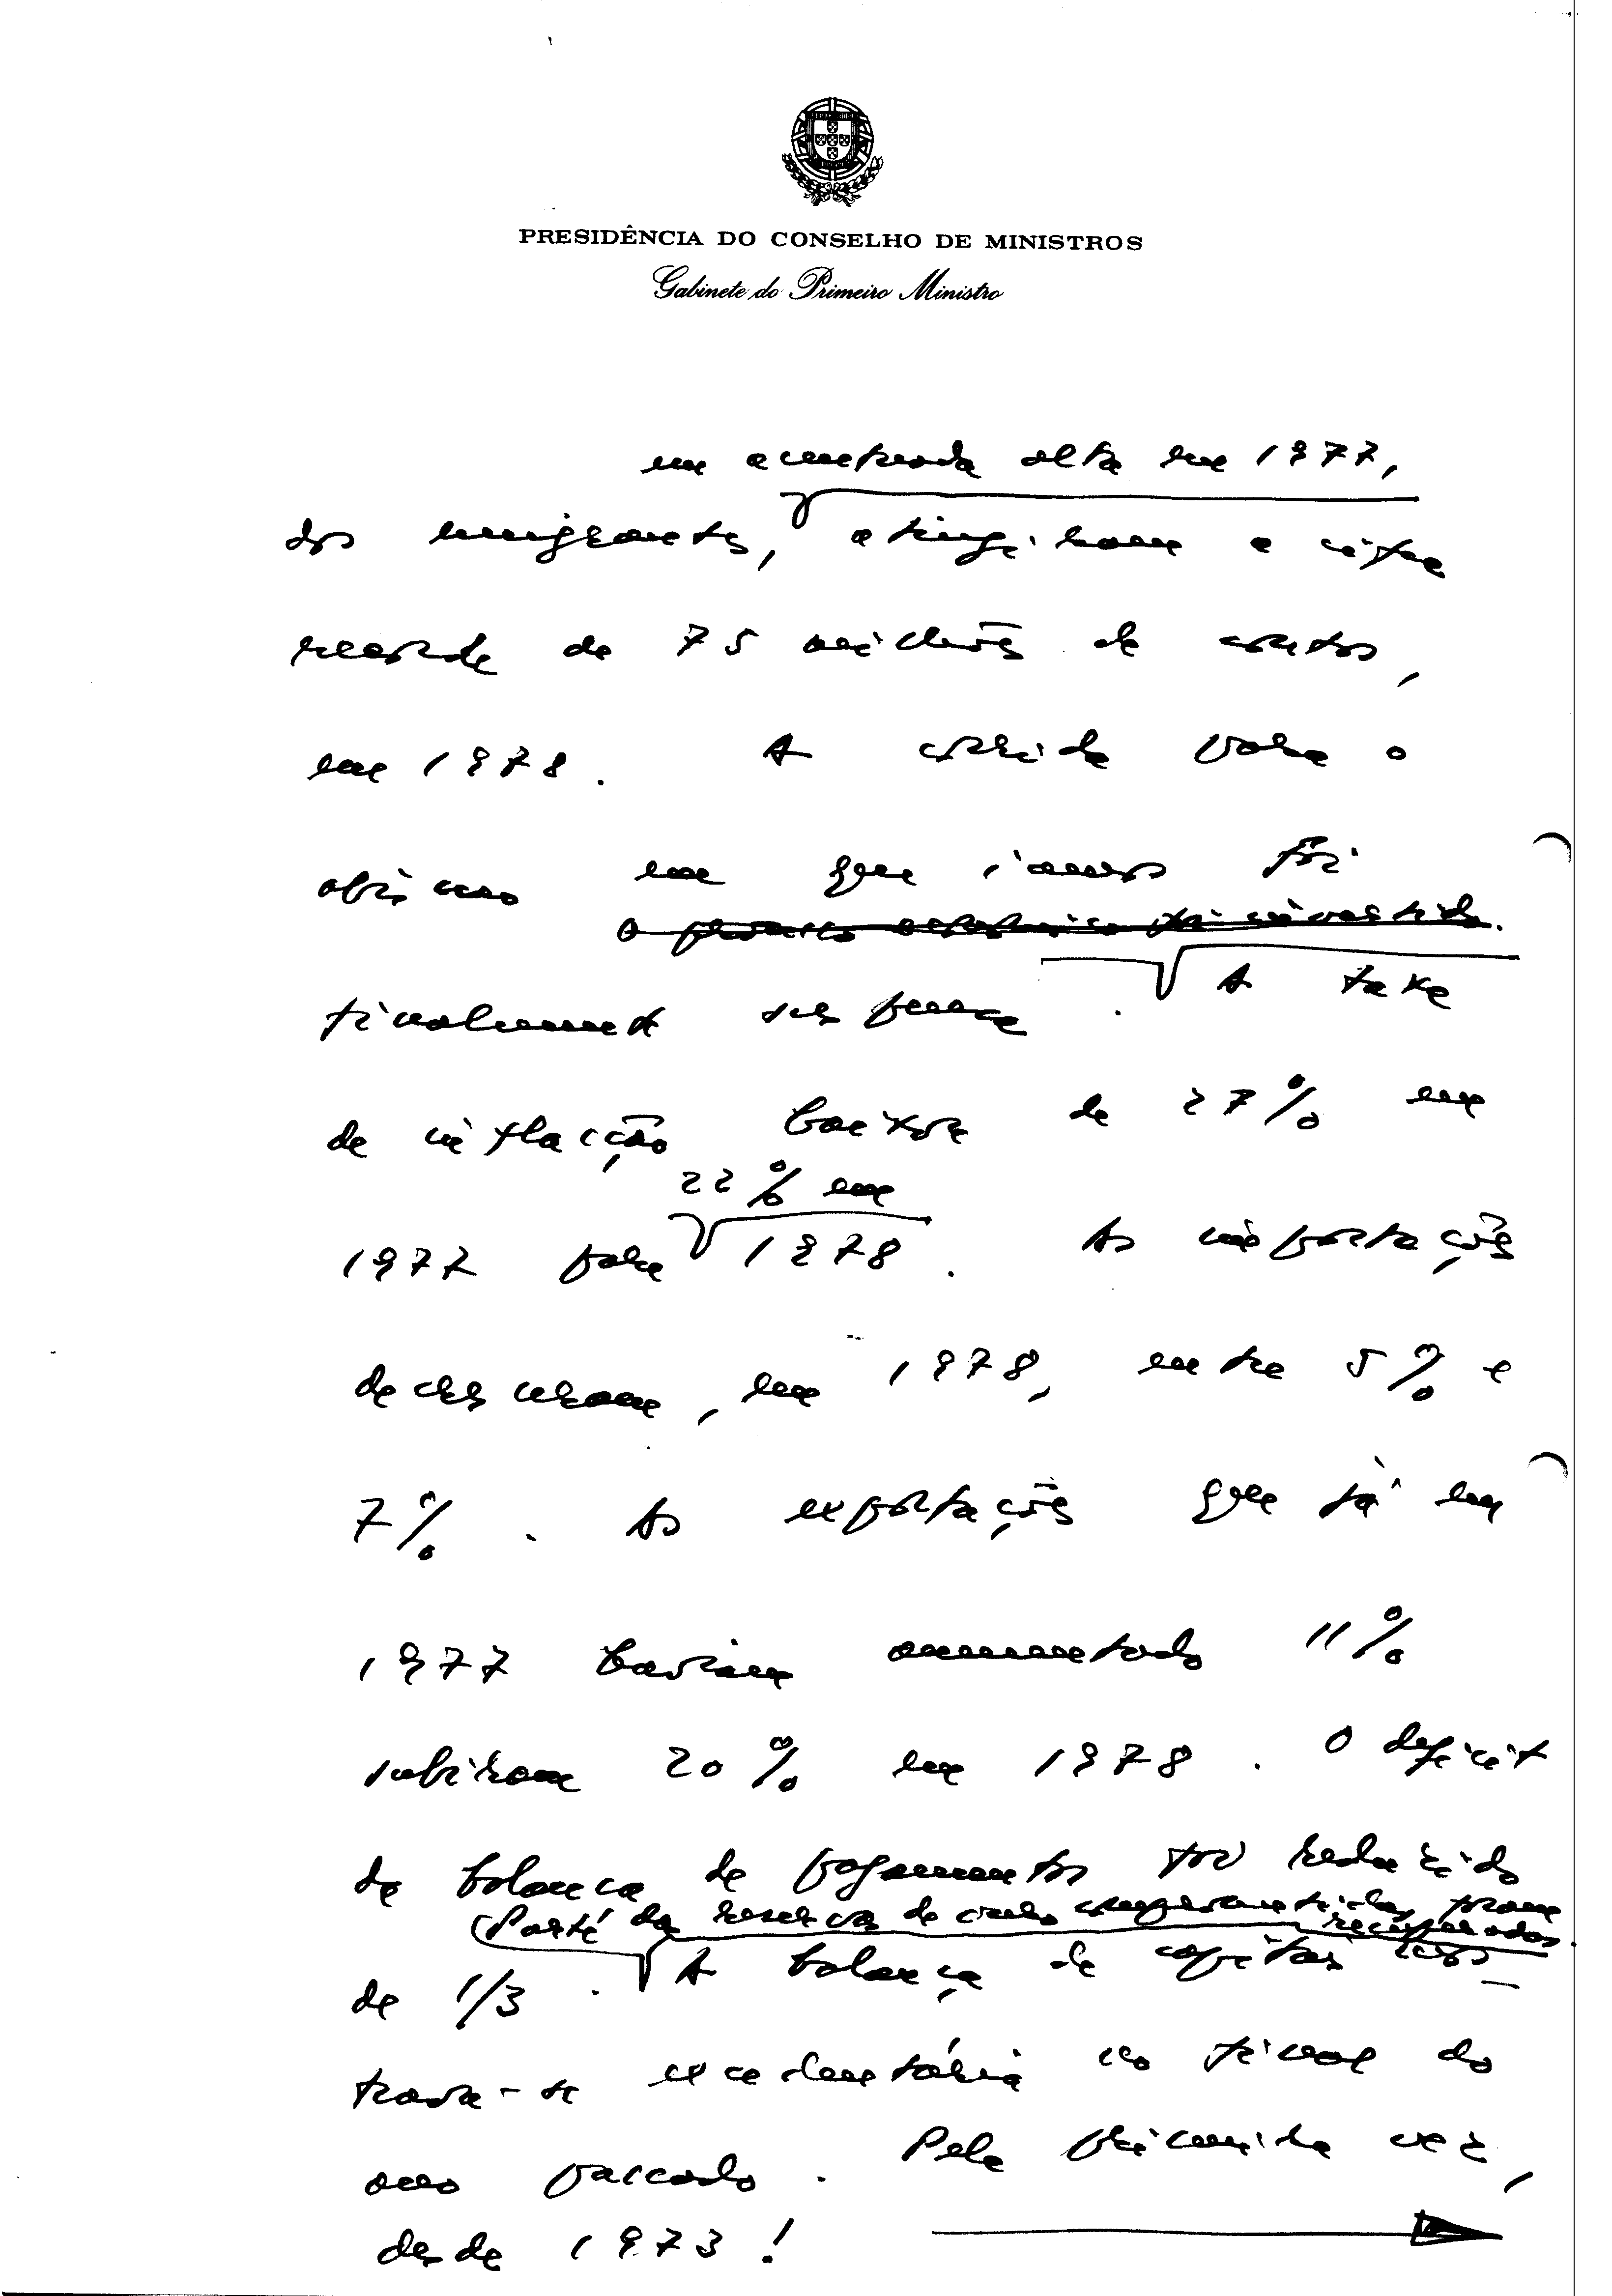 PRESIDÊNCIA DO CONSELHO DE MINISTROS
Gabinete do Primeiro Ministro
em acentuada alta em 1977,
dos emigrantes, atingiram a cifra
recorde de 75 milhões de contos,
em 1978. A corrida para o
abismo em que íamos foi
o processo
finalmente suspensa. A taxa
de inflacção baixou de 27% em
22% em
1977 para 1978. As importações
decresceram, em 1978, entre 5% e
7%. As exportações que já em
1977 haviam aumentado 11%
subiram 20% em 1978. O deficit
da balança de pagamentos foi reduzido
Parte das reservas de ouro foram
recuperadas
de 1/3. A balança de capitais
trava-se excedentária no final do
ano passado. Pela primeira vez,
desde 1973!